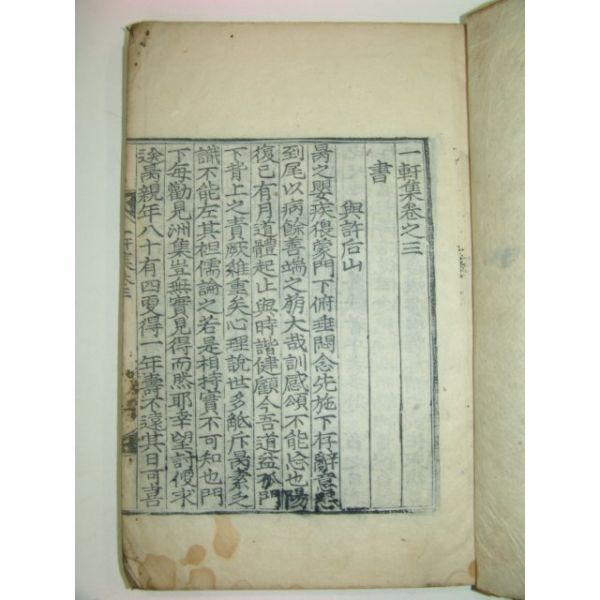 一軒集卷之三
書
與許后山
昺之嬰疾猥蒙門下俯垂悶念先施下存辭意忠
到尾以病餘善端之萌大哉訓感頌不能忘也陽
復已有月道體起止與時諧健顧今吾道益孤門
下背上之責厥維重矣心理說世多觝斥昺素之
識不能左其袒儒論之若是相持實不可知也門
下每勸見洲集豈無實見得而然耶幸望討便求
送昺親年八十有四更得一年壽不遠其日可喜
一軒集卷三